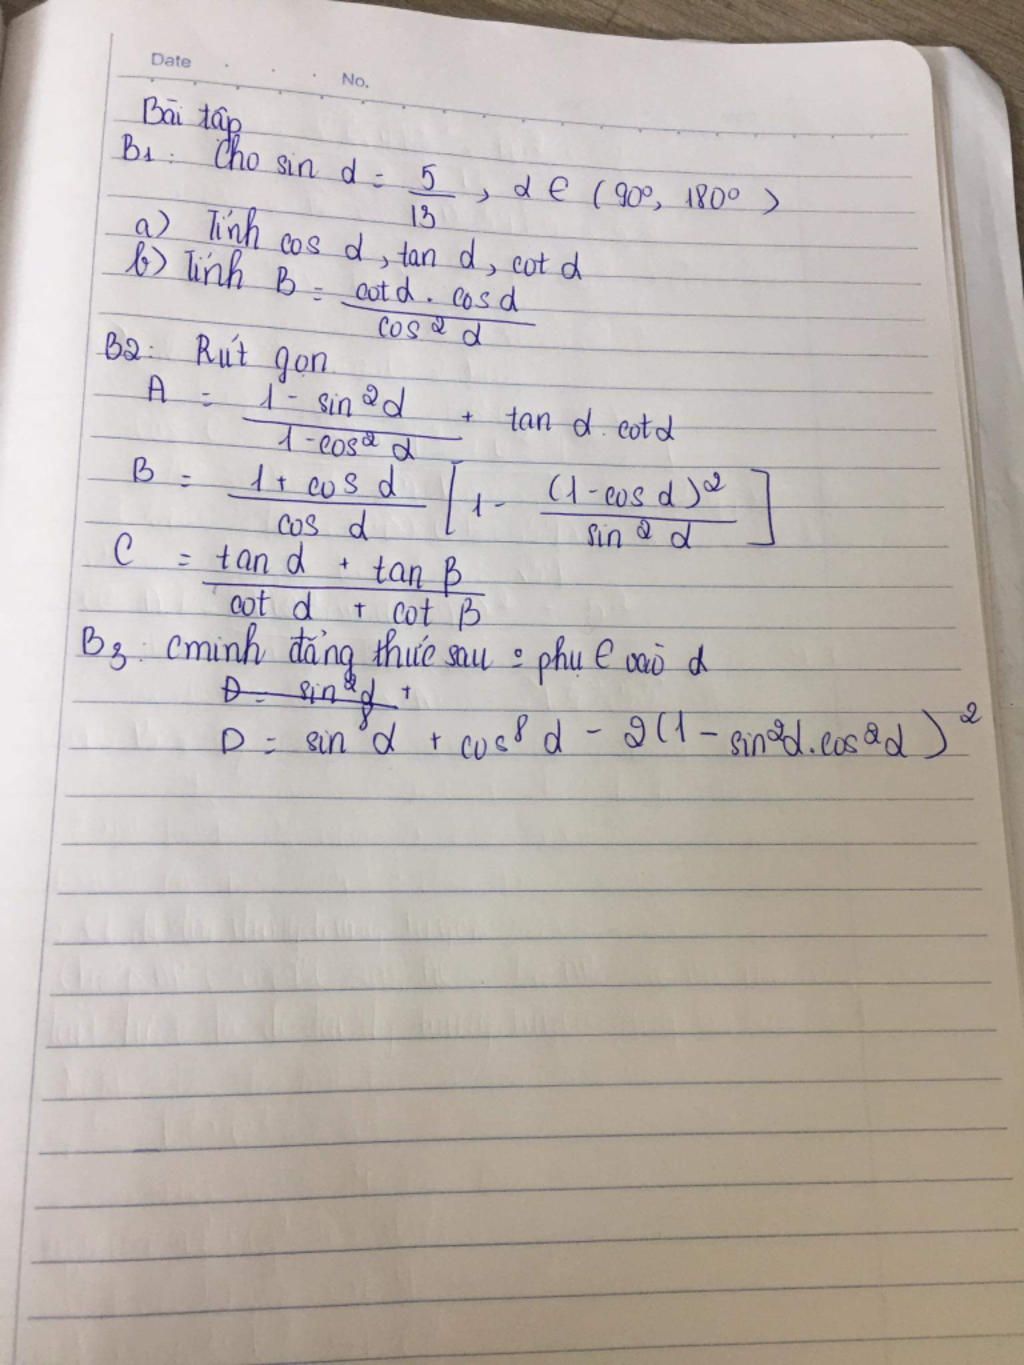 Date
No.
Bài tập
B1: Cho sin α = 5/13, α ∈ (90°, 180°)
a) Tính cos α, tan α, cot α
b) Tính B = cot α . cos α / cos² α
B2: Rút gọn
A = 1 - sin² α / 1 - cos² α + tan α . cot α
B = 1 + cos α / cos α [1 - (1 - cos α)² / sin² α]
C = tan α + tan β / cot α + cot β
B3: Cminh đẳng thức sau : phụ ∈ vào α
D = sin² α +
D = sin⁸ α + cos⁸ α - 2(1 - sin² α . cos² α)²